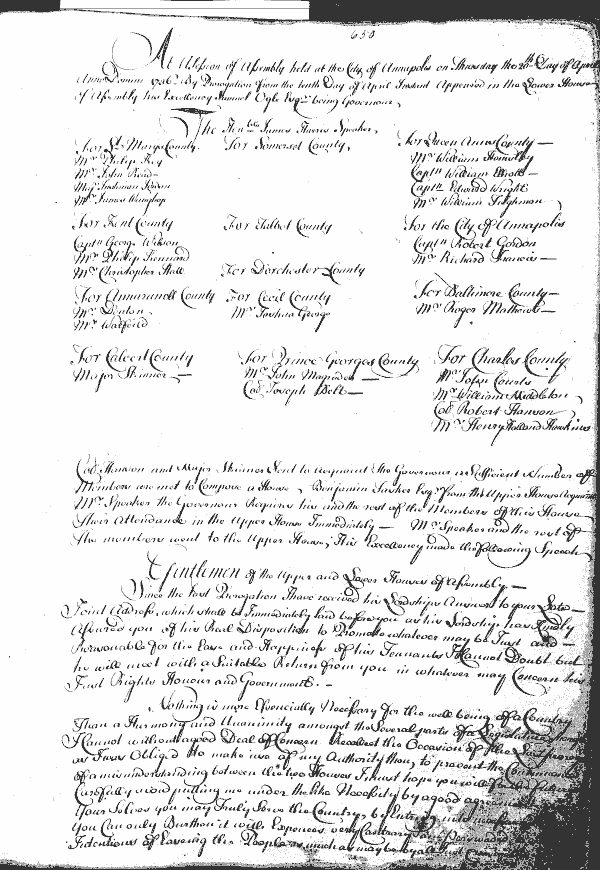 650
At a Session of Assembly held at the City of Annapolis on Thursday the 20th Day of April
Anno Domini 1736 By Prorogation from the tenth Day of April Instant Appeared in the Lower House
of Assembly his Excellency Samuel Ogle Esqr being Governour,
The Honble James Harris Speaker,
For St Marys County. For Somerset County, For Queen Anns County
Mr Philip Key Mr William Hemsley
Mr John Read Capt William Elliott
Majr Capt Edward Wright
Mr James Mr William Tilghman
For Kent County For Talbot County For the City of Annapolis
Capt George Wilson Capt Robert Gordon
Mr Phillip Kennard Mr Richard Francis
Mr Christopher Hall For Dorchester County
For Annarundl County For Cecil County For Baltimore County
Mr Denton Mr Joshua George Mr Roger Mathews
Mr Warfield
For Calvert County For Prince Georges County For Charles County
Major Skinner Mr John Magruder Mr John Courts
Col Joseph Belt Mr William Middleton
Col Robert Hanson
Mr Henry Holland Hawkins
Col Hanson and Major Skinner Sent to Acquaint the Governour a Sufficient Number of
Members are met to Compose a House, Benjamin Tasker Esqr from the Upper House Acquaints
Mr Speaker the Governour Requires his and the rest of the Members of this House
their Attendance in the Upper House Immediately Mr Speaker and the rest of
the members went to the Upper House; His Excellency made the following Speech
Gentlemen of the Upper and Lower Houses of Assembly
Since the last Prorogation I have received his Lordships Answer to your Late
Joint Address, which shall be Immediately laid before you as his Lordship has kindly
Assured you of his Real Disposition to Promote whatever may be Just and
Reasonable for the Ease and Happiness of his Tennants I Cannot Doubt but
he will meet with a Suitable Return from you in whatever may Concern his
Just Rights Honour and Government.
Nothing is more Essencially Necessary for the well being of a Country
Than a Harmony and Unanimity amongst the Several parts of a Legislature
I Cannot without a good Deal of Concern Recollect the Occasion of the
I was Obliged to make use of my Authority then, to prevent the Continuance
of a misunderstanding between the two Houses I must hope you will for the future
Carefully avoid putting me under the like Necessity by a good agreement
Your Selves you may Truly Serve the Country by Entering into
You can only Burthen it with Expences very Contrary to
Intentions of Easeing the People as much as may be by a